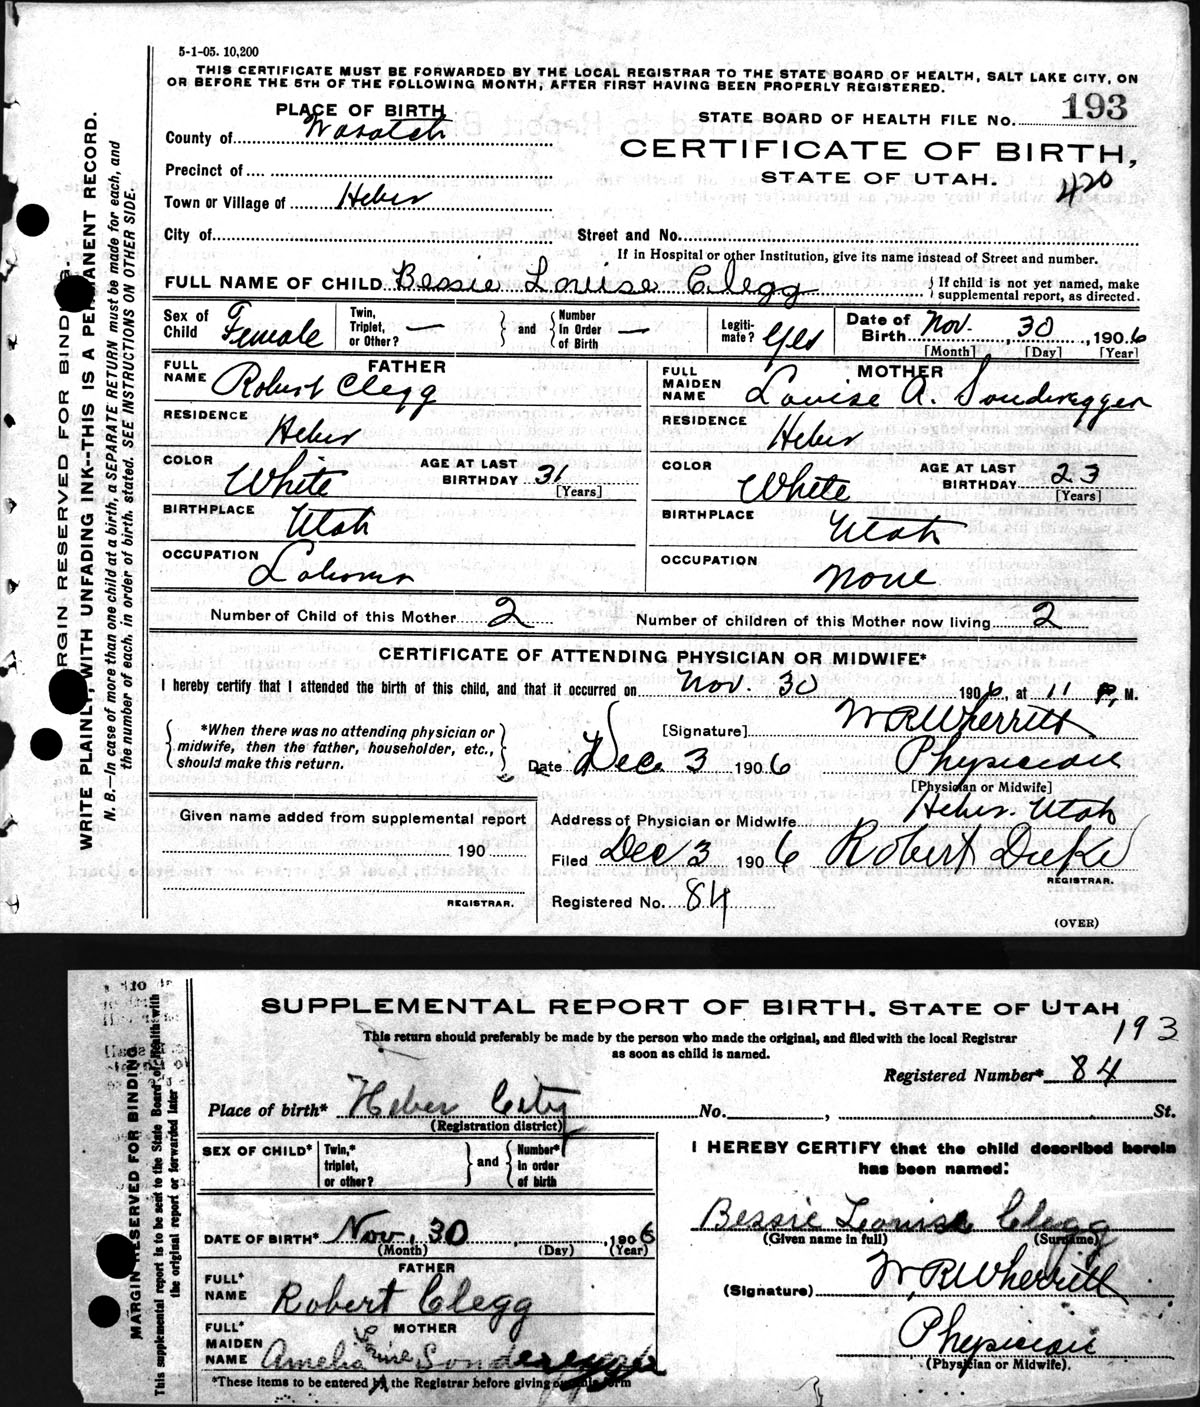 5-1-05. 10,200
THIS CERTIFICATE MUST BE FORWARDED BY THE LOCAL REGISTRAR TO THE STATE BOARD OF HEALTH, SALT LAKE CITY, ON
OR BEFORE THE 5TH OF THE FOLLOWING MONTH, AFTER FIRST HAVING BEEN PROPERLY REGISTERED.
PLACE OF BIRTH
STATE BOARD OF HEALTH FILE No. 193
County of Wasatch
CERTIFICATE OF BIRTH,
Precinct of
STATE OF UTAH.
420
Town or Village of Heber
City of Street and No.
If in Hospital or other Institution, give its name instead of Street and number.
FULL NAME OF CHILD Bessie Louise Clegg { If child is not yet named, make supplemental report, as directed.
Sex of Child Female Twin, Triplet, or Other? — } and { Number In Order of Birth — Legiti-mate? Yes Date of Birth Nov. 30, 1906
[Month] [Day] [Year]
FATHER
FULL NAME Robert Clegg
RESIDENCE Heber
COLOR White AGE AT LAST BIRTHDAY 31 [Years]
BIRTHPLACE Utah
OCCUPATION
MOTHER
FULL MAIDEN NAME Louise A. Sonderegger
RESIDENCE Heber
COLOR White AGE AT LAST BIRTHDAY 23 [Years]
BIRTHPLACE Utah
OCCUPATION None
Number of Child of this Mother 2 Number of children of this Mother now living 2
CERTIFICATE OF ATTENDING PHYSICIAN OR MIDWIFE*
I hereby certify that I attended the birth of this child, and that it occurred on Nov. 30 1906, at 11 P, M.
{ *When there was no attending physician or
midwife, then the father, householder, etc.,
should make this return. }
[Signature] W R Wherritt
Date Dec. 3 1906 Physician
[Physician or Midwife]
Address of Physician or Midwife Heber. Utah
Filed Dec 3 1906 Robert Duke
REGISTRAR.
Registered No. 84
Given name added from supplemental report
190
REGISTRAR.
(OVER)
MARGIN RESERVED FOR BINDING.
WRITE PLAINLY, WITH UNFADING INK--THIS IS A PERMANENT RECORD.
N. B.—In case of more than one child at a birth, a SEPARATE RETURN must be made for each, and
the number of each, in order of birth, stated. SEE INSTRUCTIONS ON OTHER SIDE.
SUPPLEMENTAL REPORT OF BIRTH, STATE OF UTAH
193
This return should preferably be made by the person who made the original, and filed with the local Registrar
as soon as child is named.
Registered Number* 84
Place of birth* Heber City No. , St.
(Registration district)
SEX OF CHILD* Twin,* triplet, or other? } and { Number* in order of birth
DATE OF BIRTH* Nov. 30, 1906
(Month) (Day) (Year)
FATHER
FULL* NAME Robert Clegg
MOTHER
FULL* MAIDEN NAME Amelia Louise Sonderegger
*These items to be entered by the Registrar before giving out this form
I HEREBY CERTIFY that the child described herein
has been named:
Bessie Louise Clegg
(Given name in full) (Surname)
(Signature) W R Wherritt
Physician
(Physician or Midwife).
MARGIN RESERVED FOR BINDING
This supplemental report is to be sent to the State Board of Health with
the original report or forwarded later